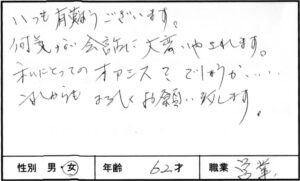 いつも有難うございます。
何気ない会話に大変いやされます。
私にとってのオアシスでしょうか……
これからもよろしくお願い致します。
性別 男・女 年齢 62才 職業 営業